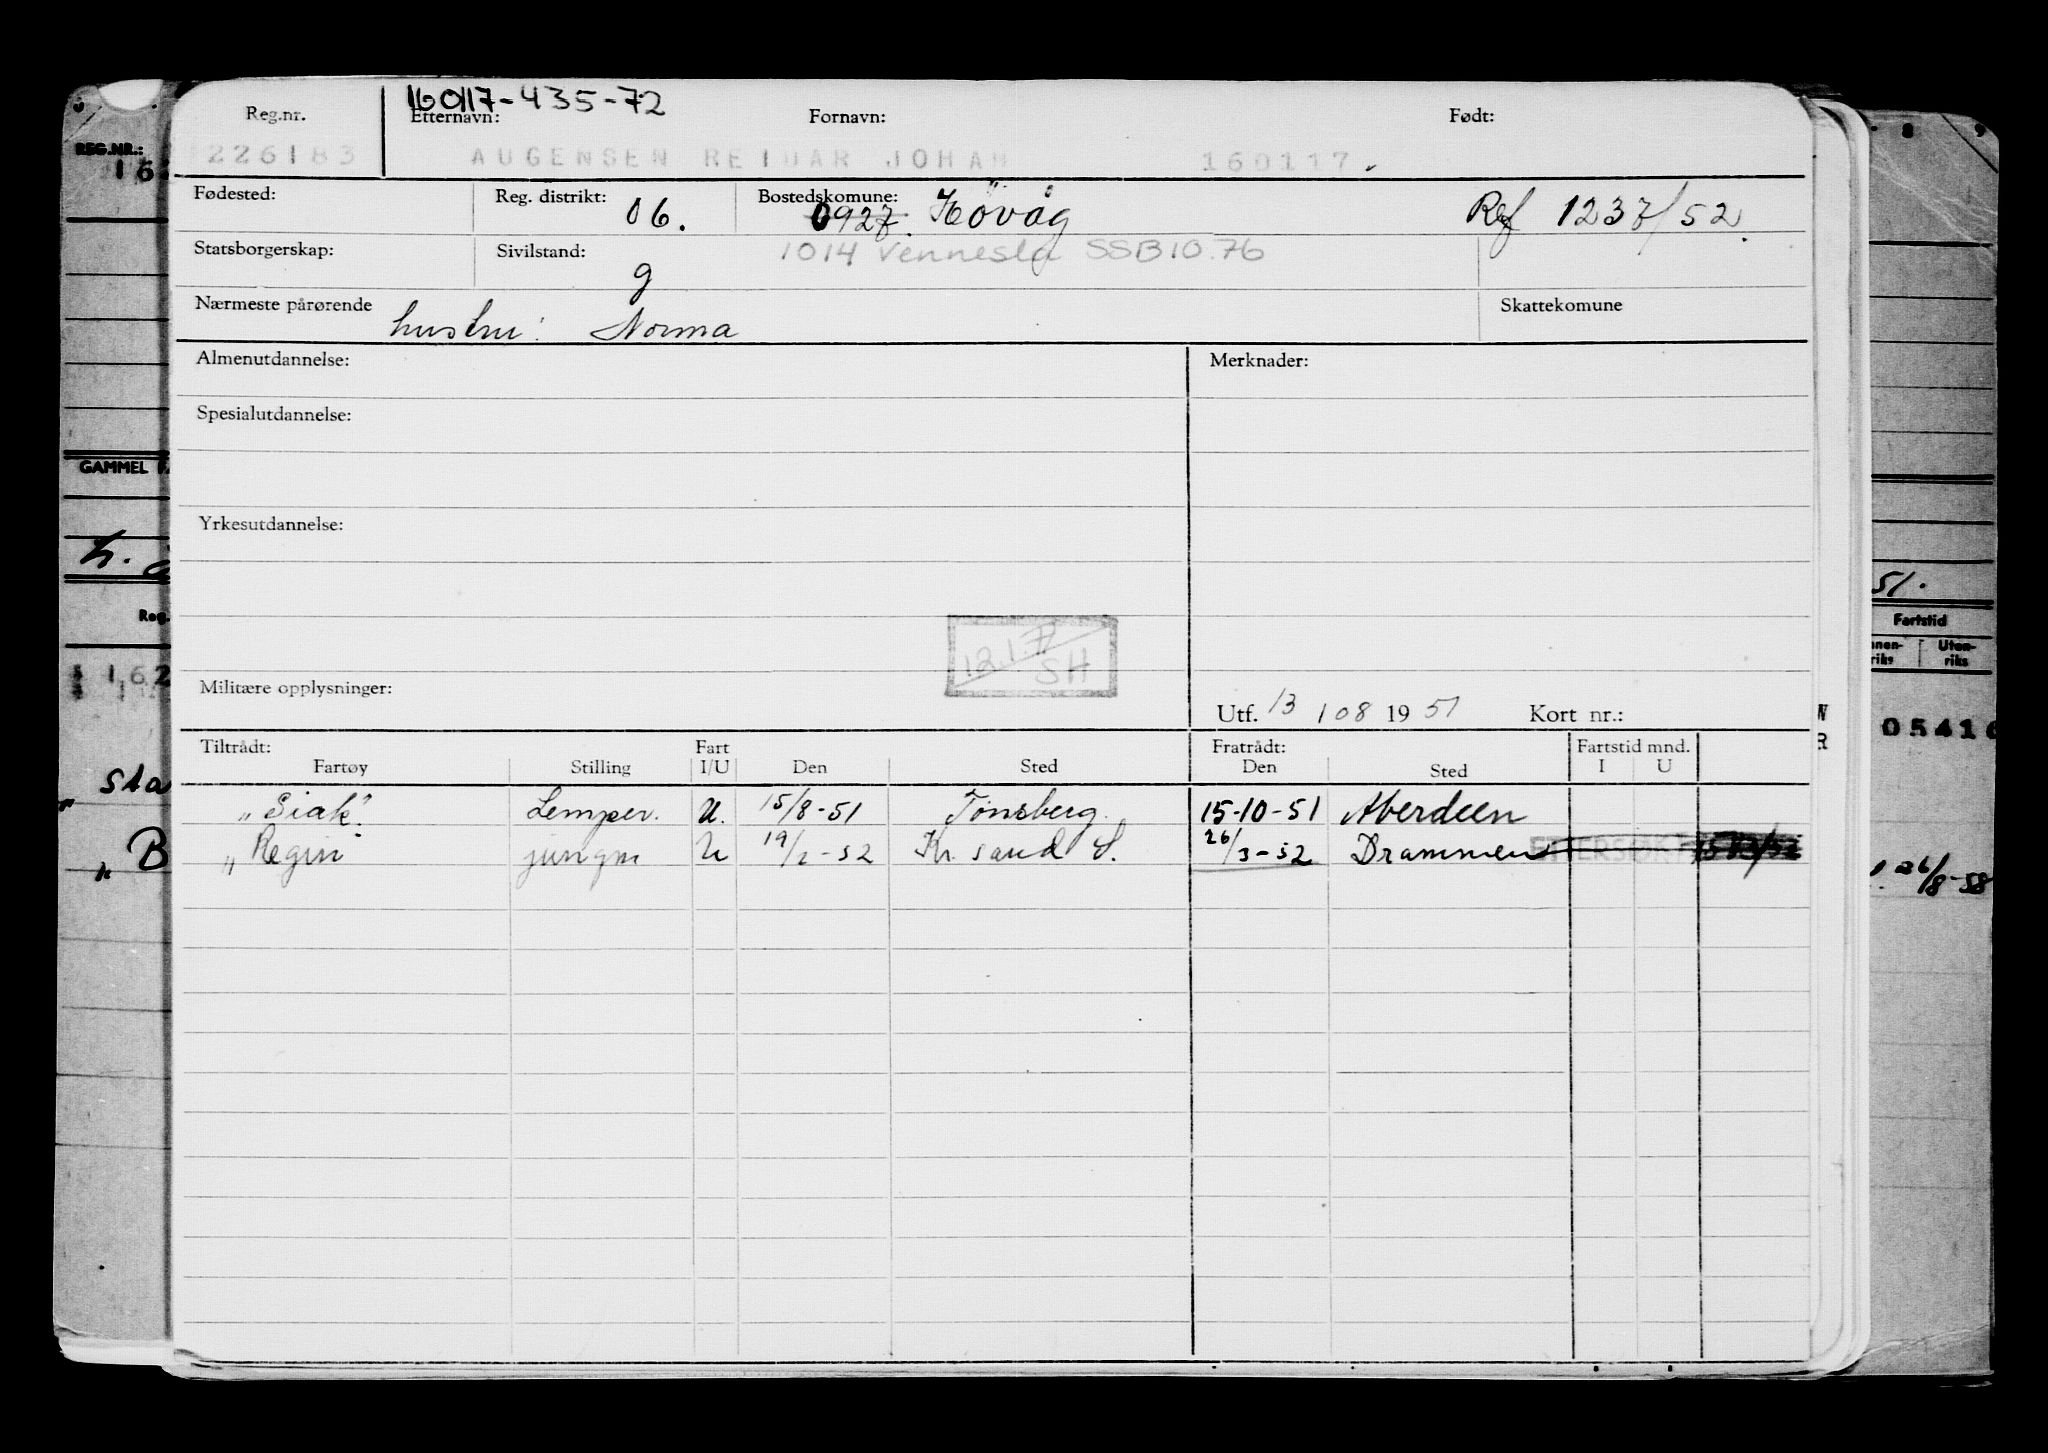 160117-435-72
Reg.nr. Etternavn: Fornavn: Født:
226183 AUGENSEN REIDAR JOHAN 160117.
Fødested: Reg. distrikt: 06. Bostedskomune: 0927. Høvåg Ref 1237/52.
Statsborgerskap: Sivilstand: g 1014 Vennesla SSB10.76
Nærmeste pårørende hustru: Norma Skattekomune
Almenutdannelse: Merknader:
Spesialutdannelse:
Yrkesutdannelse:
SH
Militære opplysninger:
Utf. 13 / 08 19 51 Kort nr.:
Tiltrådt: Fart Fratrådt: Fartstid mnd.
Fartøy Stilling I/U Den Sted Den Sted I U
"Siak". Lemper. U. 15/8-51 Tønsberg. 15-10-51 Aberdeen
"Regin" jungm U 19/2-52 Kr. sand S. 26/3-52 Drammen ETTERSØKT
REG.NR.:
16
GAMMEL
Reg.
162
Sta
"B
8 9
51.
Fartstid
Uten-
riks
05416
26/8-58